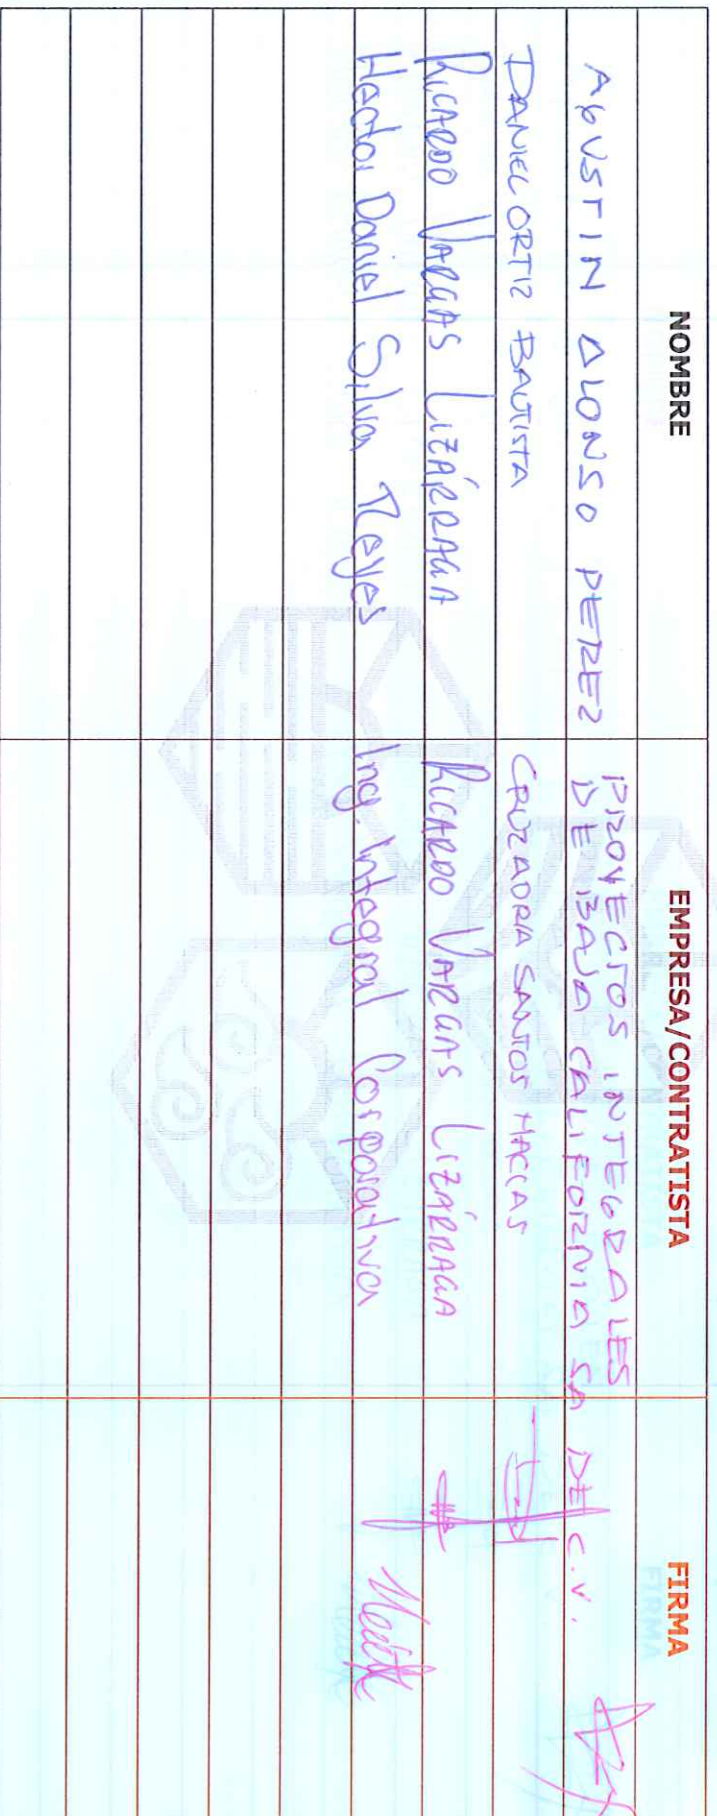 NOMBRE EMPRESA/CONTRATISTA FIRMA
AGUSTIN ALONSO PEREZ PROYECTOS INTEGRALES
DE BAJA CALIFORNIA SA DE C.V.
DANIEL ORTIZ BAUTISTA CRUZ ADRIA SANTOS MACIAS
RICARDO VARGAS LIZÁRRAGA RICARDO VARGAS LIZÁRRAGA
Hector Daniel Silva Reyes Ing. Integral Corporativa